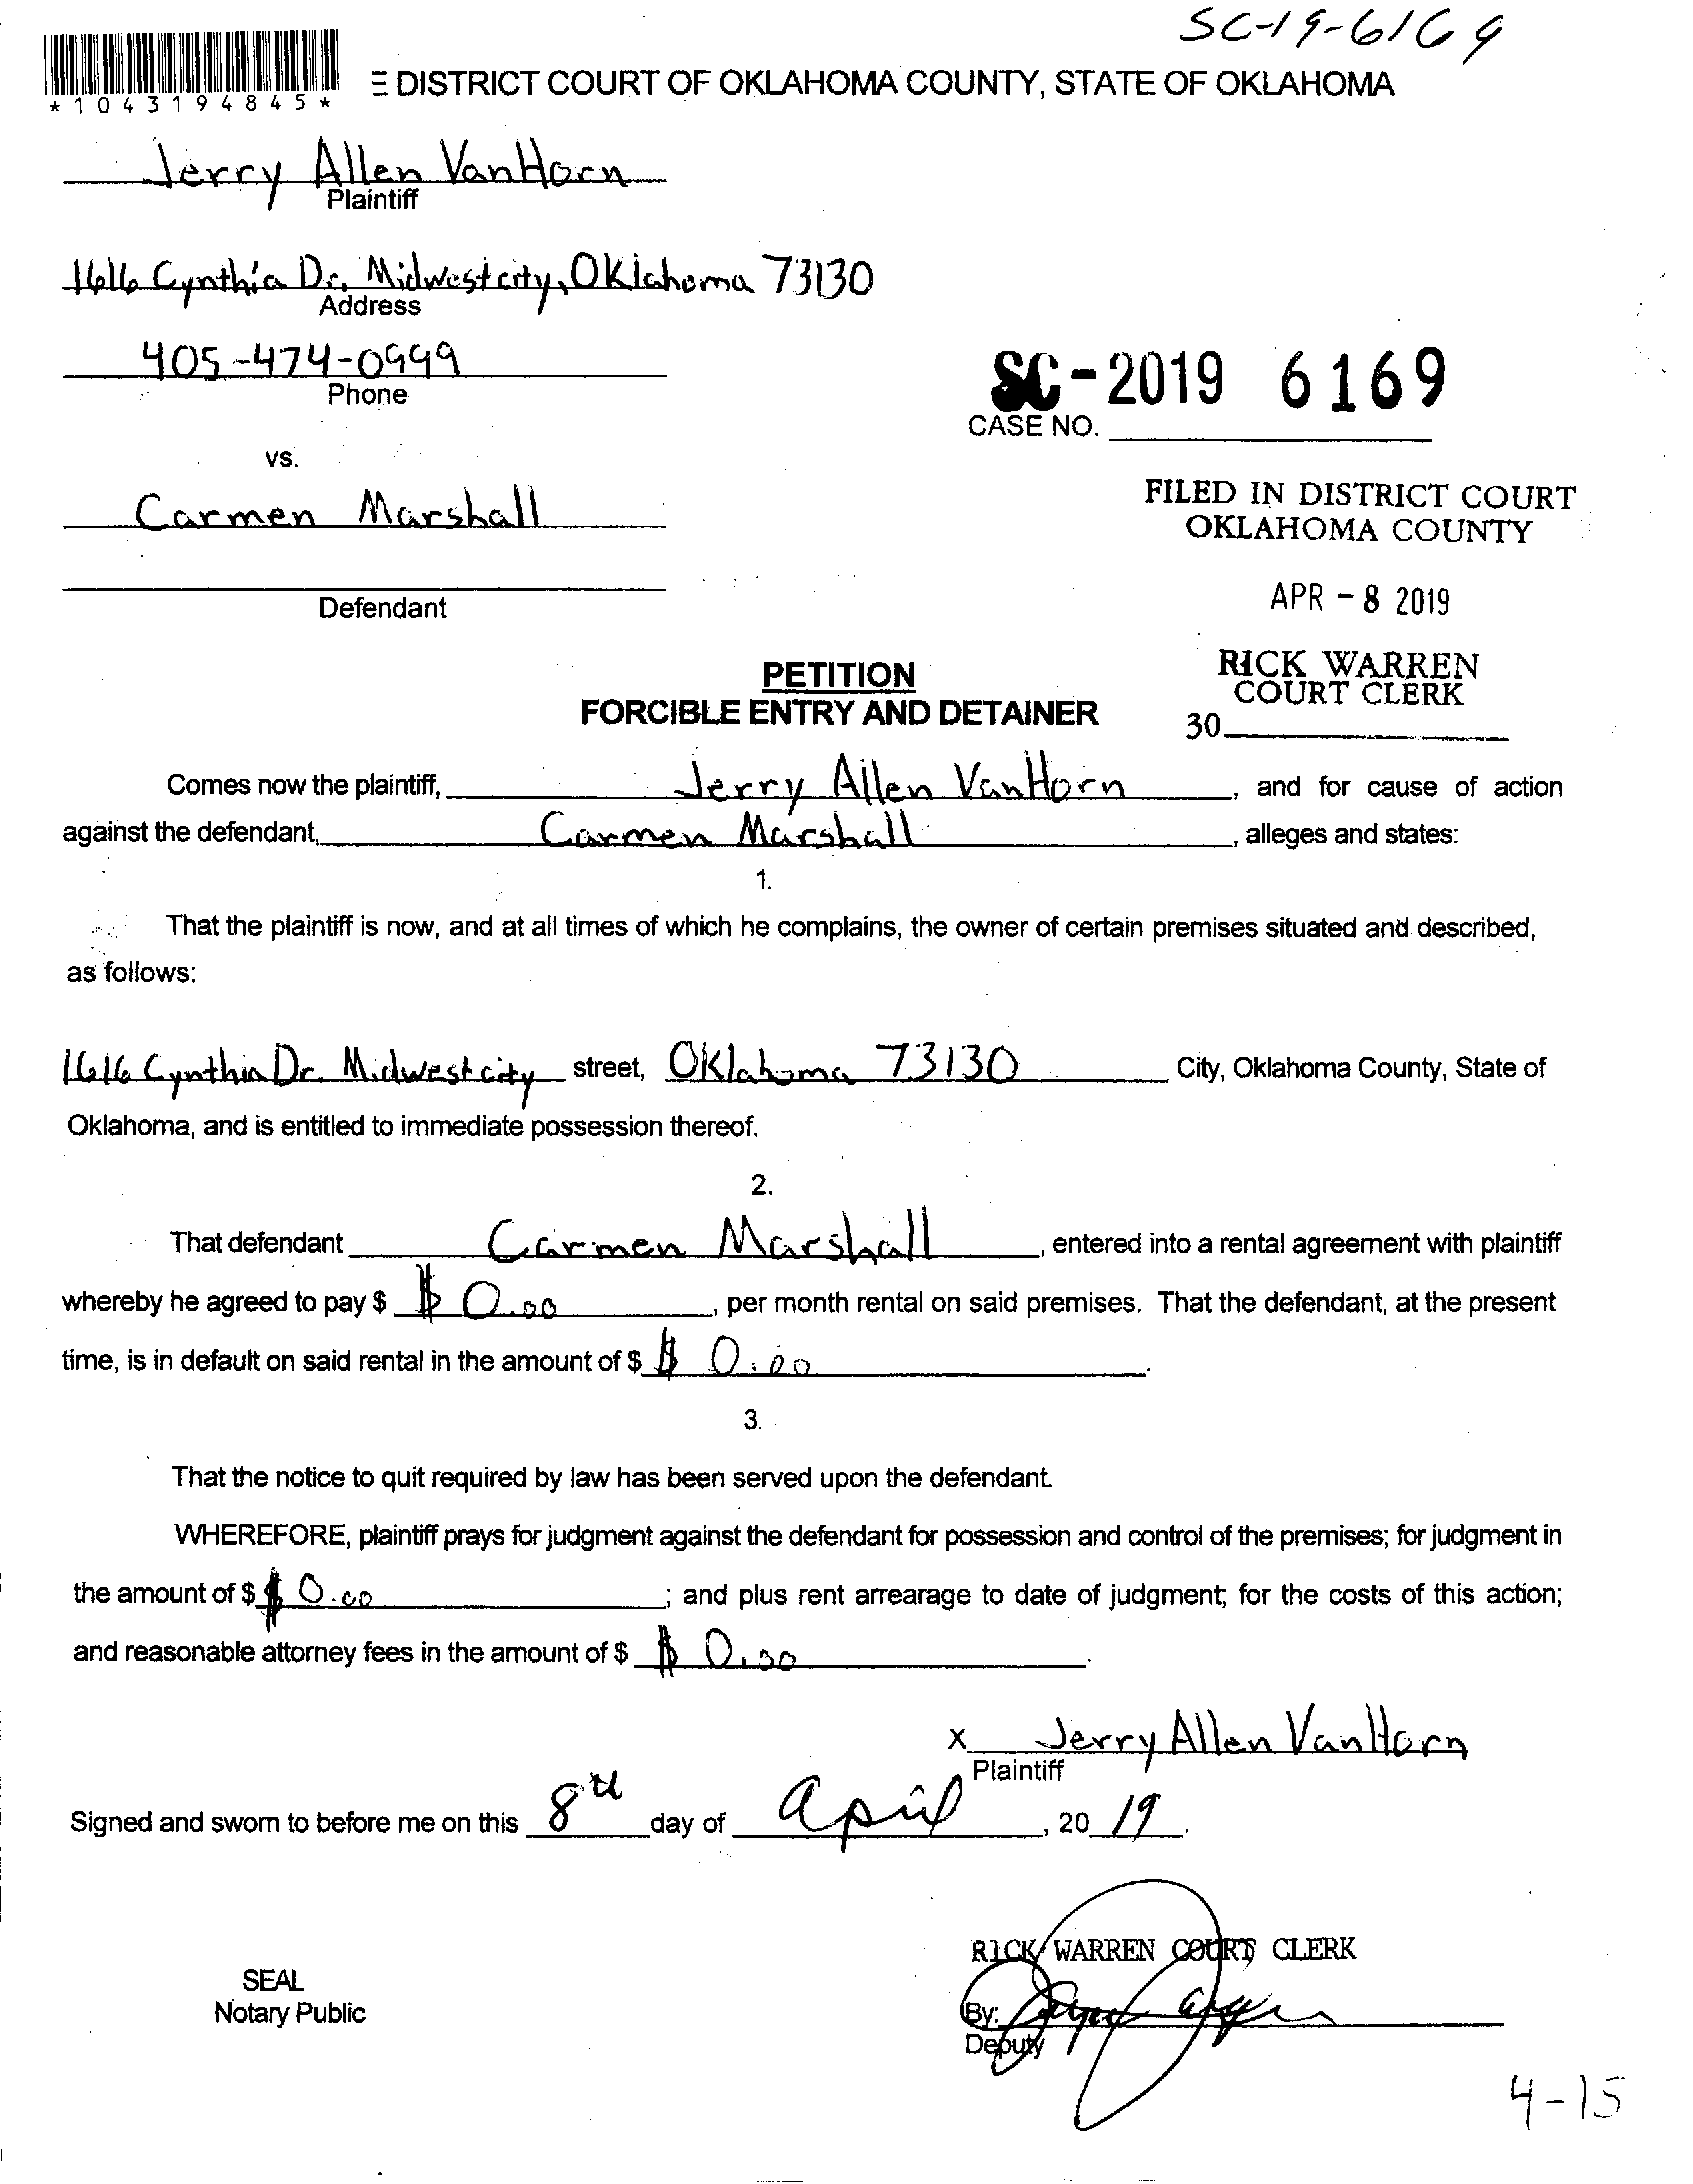 SC-19-6169
*1043194845*
E DISTRICT COURT OF OKLAHOMA COUNTY, STATE OF OKLAHOMA
Jerry Allen VanHorn
Plaintiff
1616 Cynthia Dr. Midwestcity, Oklahoma 73130
Address
405-474-0999
Phone
SC-2019 6169
CASE NO.
vs.
Carmen Marshall
Defendant
FILED IN DISTRICT COURT
OKLAHOMA COUNTY
APR - 8 2019
RICK WARREN
COURT CLERK
30
PETITION
FORCIBLE ENTRY AND DETAINER
Comes now the plaintiff, Jerry Allen VanHorn, and for cause of action
against the defendant, Carmen Marshall, alleges and states:
1.
That the plaintiff is now, and at all times of which he complains, the owner of certain premises situated and described,
as follows:
1616 Cynthia Dr. Midwestcity street, Oklahoma 73130 City, Oklahoma County, State of
Oklahoma, and is entitled to immediate possession thereof.
2.
That defendant Carmen Marshall, entered into a rental agreement with plaintiff
whereby he agreed to pay $ $ 0.00, per month rental on said premises. That the defendant, at the present
time, is in default on said rental in the amount of $ $ 0.00.
3.
That the notice to quit required by law has been served upon the defendant.
WHEREFORE, plaintiff prays for judgment against the defendant for possession and control of the premises; for judgment in
the amount of $ $ 0.00; and plus rent arrearage to date of judgment; for the costs of this action;
and reasonable attorney fees in the amount of $ $ 0.00.
x Jerry Allen VanHorn
Plaintiff
Signed and sworn to before me on this 8th day of April, 20 19.
RICK WARREN COURT CLERK
SEAL
Notary Public
By:
Deputy
4-15